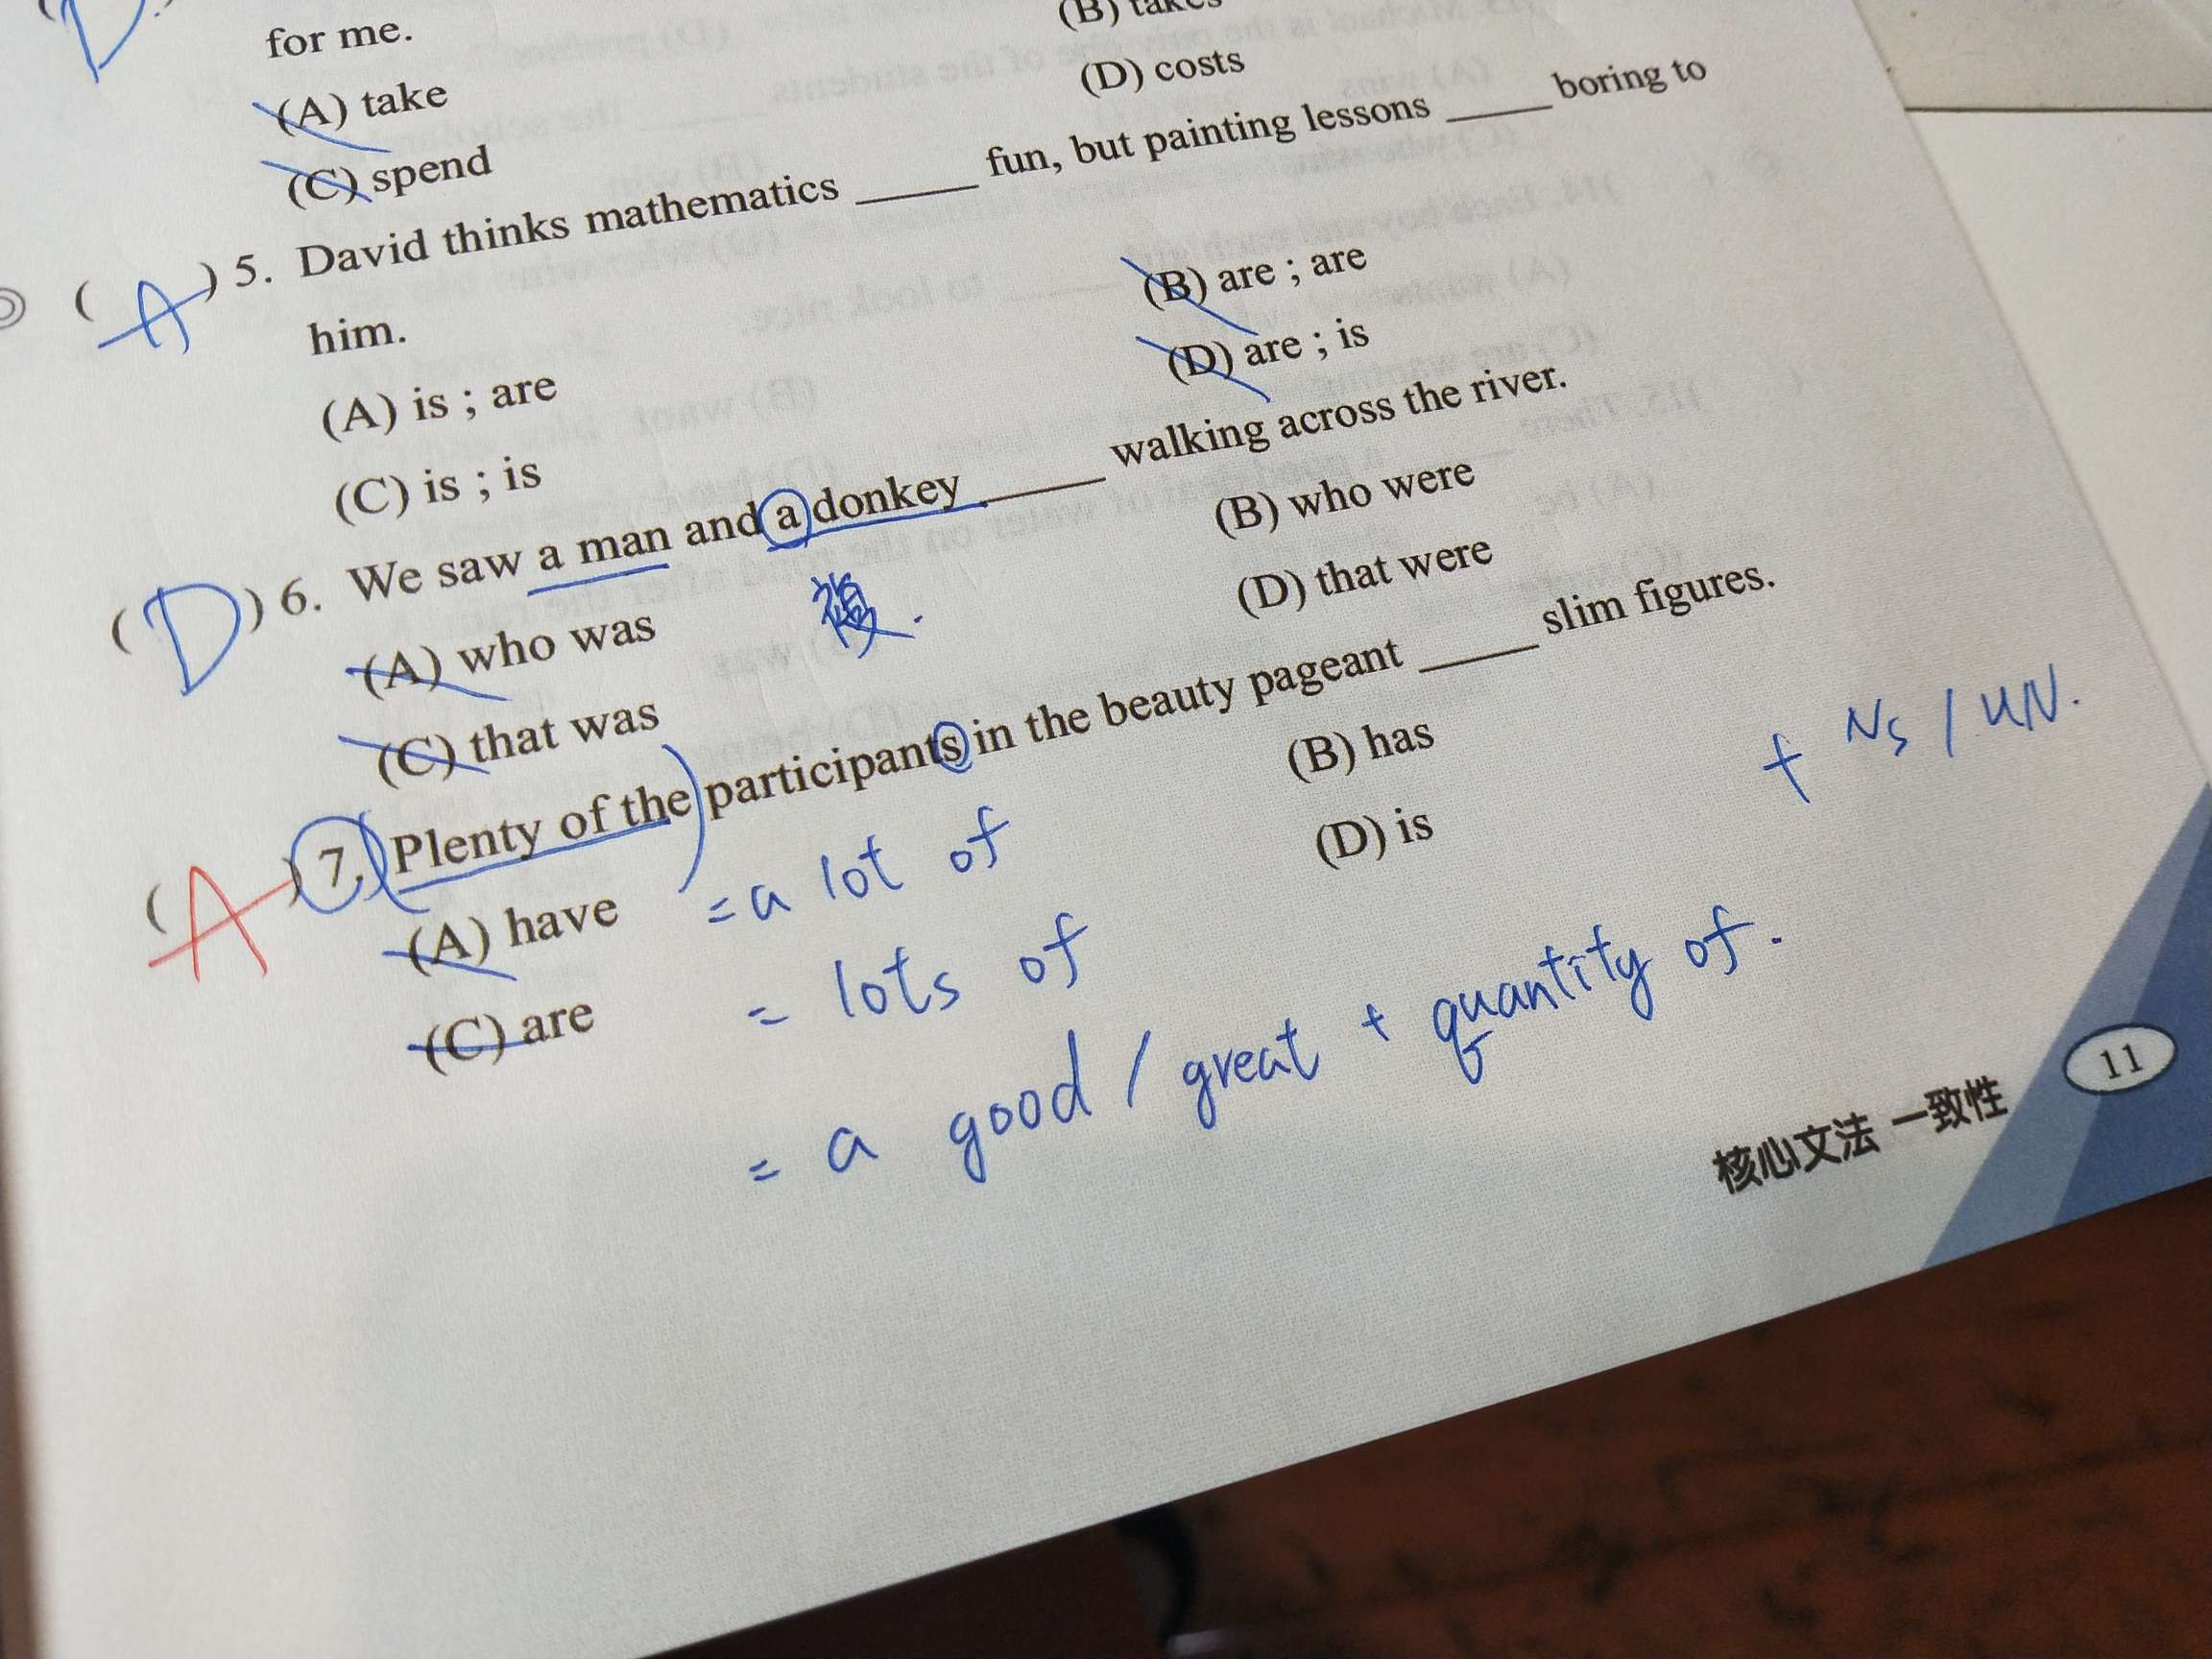 for me.
(B) takes
(A) take
(D) costs
(C) spend
( A ) 5. David thinks mathematics _____ fun, but painting lessons _____ boring to
him.
(A) is ; are
(B) are ; are
(C) is ; is
(D) are ; is
( D ) 6. We saw a man and a donkey _____ walking across the river.
複.
(A) who was
(B) who were
(C) that was
(D) that were
( A ) 7. Plenty of the participants in the beauty pageant _____ slim figures.
(A) have
(B) has
(C) are
(D) is
= a lot of
+ Ns / UN.
= lots of
= a good / great + quantity of.
核心文法 一致性
11